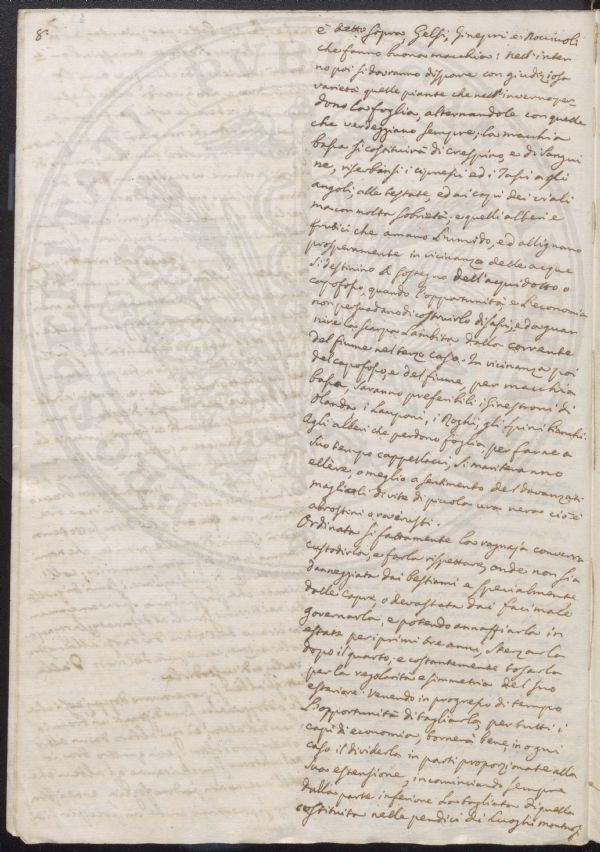 8.
è detto sopra, Gelsi, Ginepri e Nocciuoli
che fanno buona macchia: nell'inter
no poi si dovranno disporre con giudiziosa
varietà quelle piante che nell'inverno per
dono la foglia, alternandole con quelle
che verdeggiano sempre; la macchia
bassa si costituirà di crespino, e di sangui
ne, riserbansi i cipressi ed i Tassi agli
angoli, alle testate, ed ai capi dei viali
ma con molta sobrietà; e quelli alberi e
frutici che amano l'umido, ed allignano
prosperamente in vicinanza delle acque
si destinino a sostegno dell'acquidotto o
capofosso, quando l'opportunità e l'economia
non persuadano di costruirlo di sassi, e da guar
nire la scarpa lambita dalla corrente
del fiume nel terzo caso. In vicinanza poi
del capofosso, e del fiume, per macchia
bassa, saranno preferibili i Ginestroni di
Olanda, i Lamponi, i Roghi, gli spini bianchi.
Agli alberi che perdono foglia per farne a
suo tempo cappellacci, si mariteranno
ellere, o meglio a sentimento del Davanzati
magliuoli di vite di piccola uva nera cioè
abrostini o raverusti.
Ordinata sì fattamente la ragnaja converrà
custodirla, e farla rispettare, onde non sia
danneggiata dai bestiami e specialmente
dalle capre, o devastata dai facimale
governarla, e potendo annaffiarla in
estate per i primi tre anni, sterzarla
dopo il quarto, e costantemente tosarla
per la regolarità e simmetria del suo
esteriore. Venendo in progresso di tempo
l'opportunità di tagliarla, per tutti i
capi di economia, tornerà bene, in ogni
caso il dividerla in parti proporzionate alla
sua estensione, incominciando sempre
dalla parte inferiore la tagliata di quella
costituita nelle pendici di luoghi montuosi